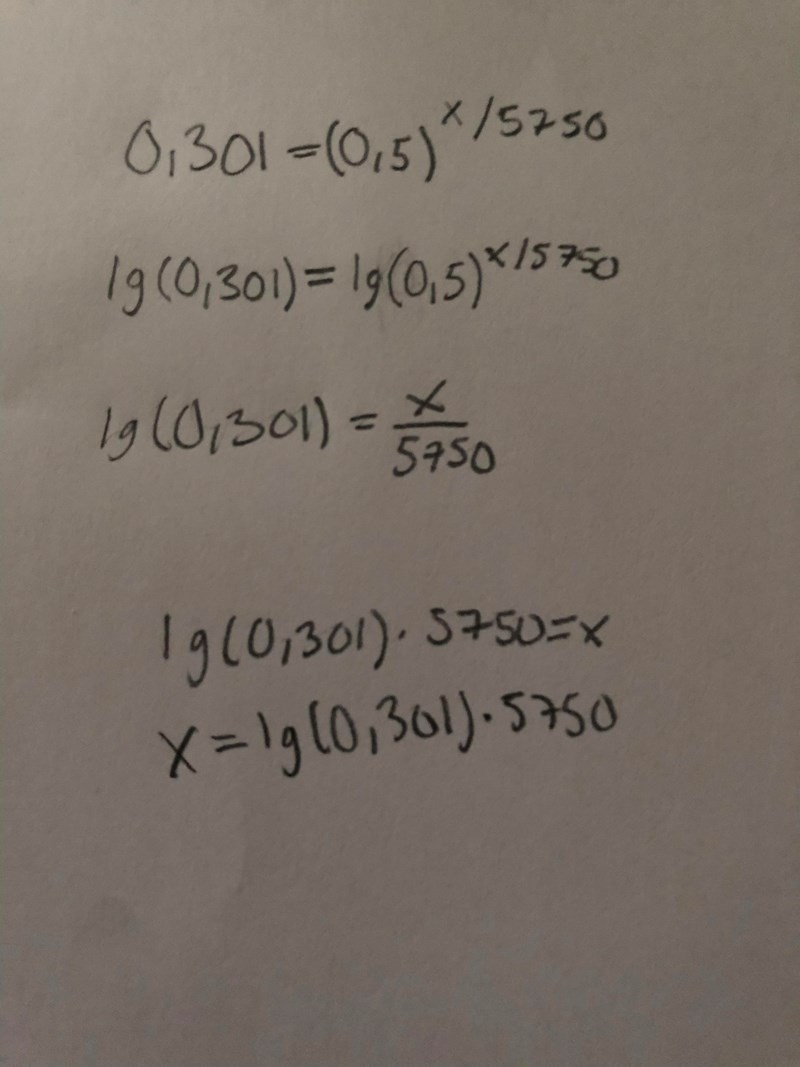 0,301 = (0,5)^x/5750
lg(0,301) = lg(0,5)^x/5750
lg(0,301) = x/5750
lg(0,301) · 5750 = x
x = lg(0,301) · 5750